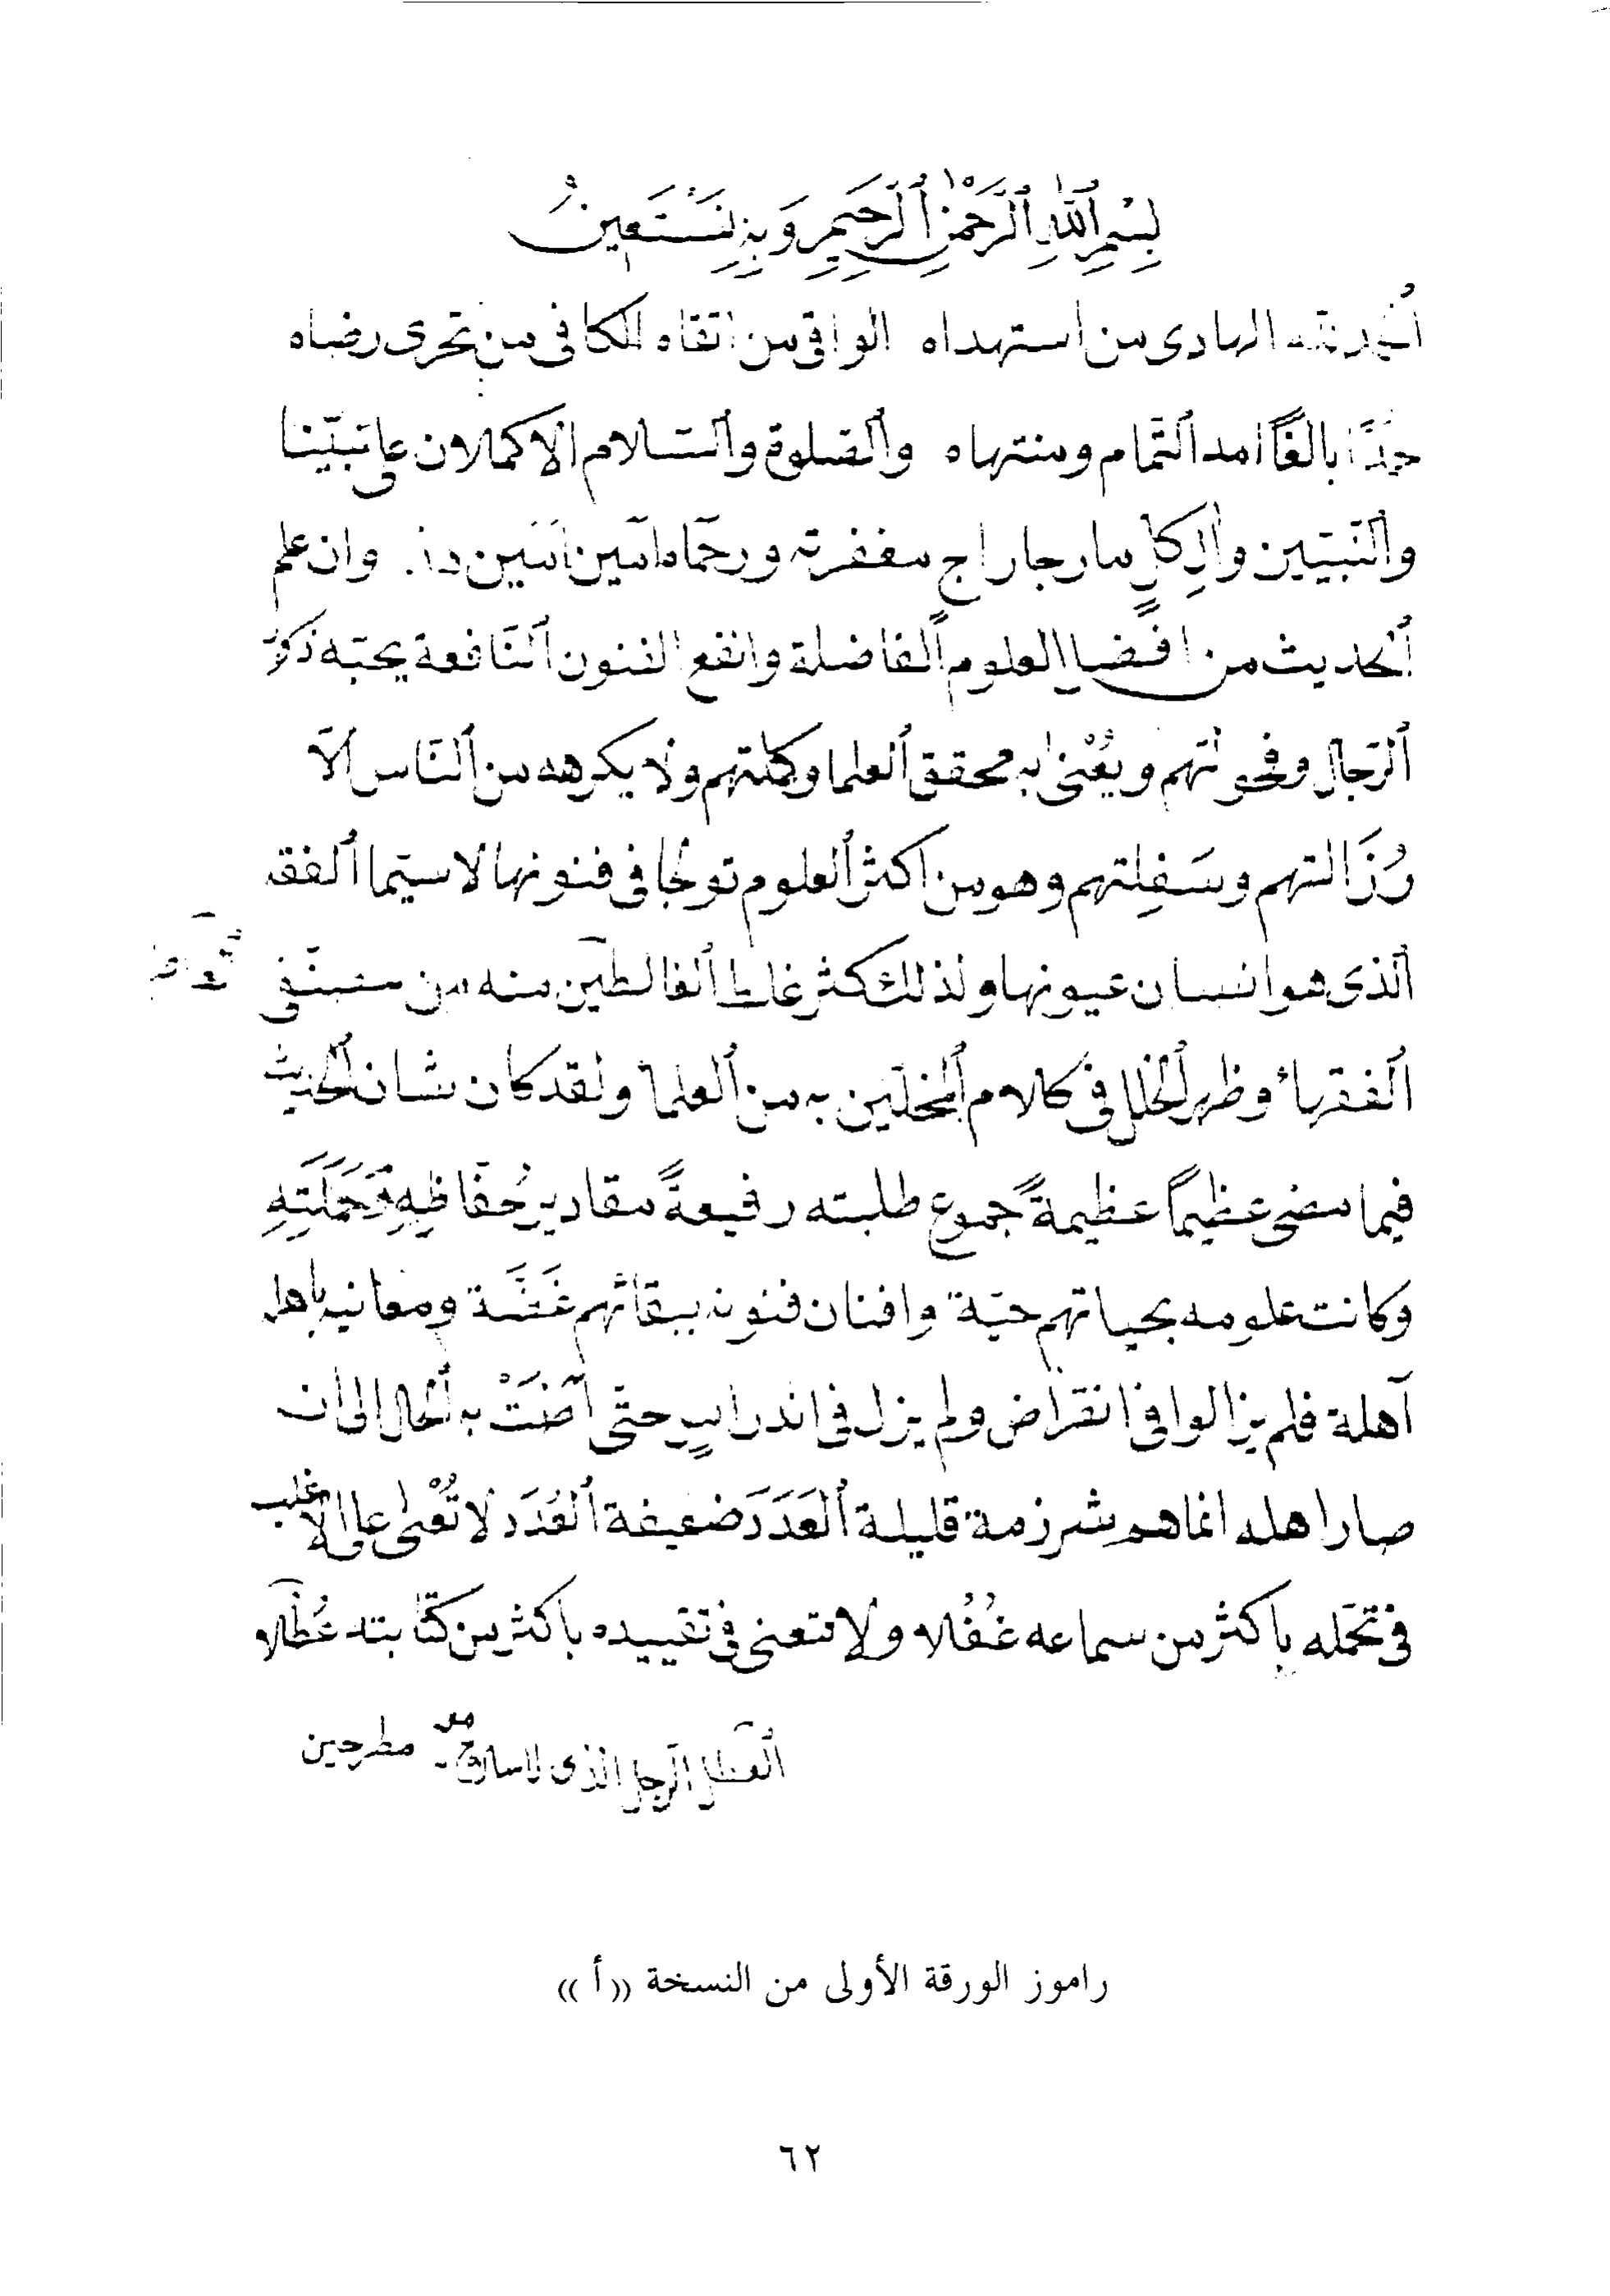 بِسْمِ اللهِ الرَّحْمٰنِ الرَّحِيمِ وَبِهِ نَسْتَعِينُ
الحمد لله الهادى من استهداه الواقى من اتقاه الكافى من تحرى رضاه
حمدًا بالغًا امد التَّمام ومنتهاه والصّلوة والسّلام الاكملان على نبيّنا
والنّبيّين وآل كلٍّ ما رجا راج مغفرته ورحماه امين امين وان علم
الحديث من افضل العلوم الفاضلة وانفع الفنون النّافعة يحبّه ذكور
الرّجال وفحولتهم ويُعْنىٰ به محققو العلما وكملتهم ولا يكرهه من النّاس الّا
رُذَالتهم وسَفِلتهم وهو من اكثر العلوم تولجا فى فنونها لا سيّما الفقه
الذى هو انسان عيونها ولذلك كثر غلط الغالطين منه من مصنّفى
الفقهاء وظهر الخلل فى كلام المخلّين به من العلما ولقد كان شان الحديث
فيما مضى عظيمًا عظيمةً جموع طلبته رفيعةً مقادير حُفّاظِهِ وَحَمَلَتِهِ
وكانت علومه بحياتهم حيّة وافنان فنونه ببقائهم غَضَّة ومغانيه باهله
آهلة فلم يزالوا فى انقراض ولم يزل فى اندراسٍ حتّى آضَتْ به الحال الى ان
صار اهله انما هم شرزمة قليلة العَدَدَ ضعيفة العُدَدَ لا تُعْنىٰ على الاغلب
فى تحمّله باكثر من سماعه غُفُلا ولا تتعنى فى تقييده باكثر من كتابته عُطُلا
العطل الرجل الذى لا سلاح معه مطرحين
راموز الورقة الأولى من النسخة «أ»
٦٢